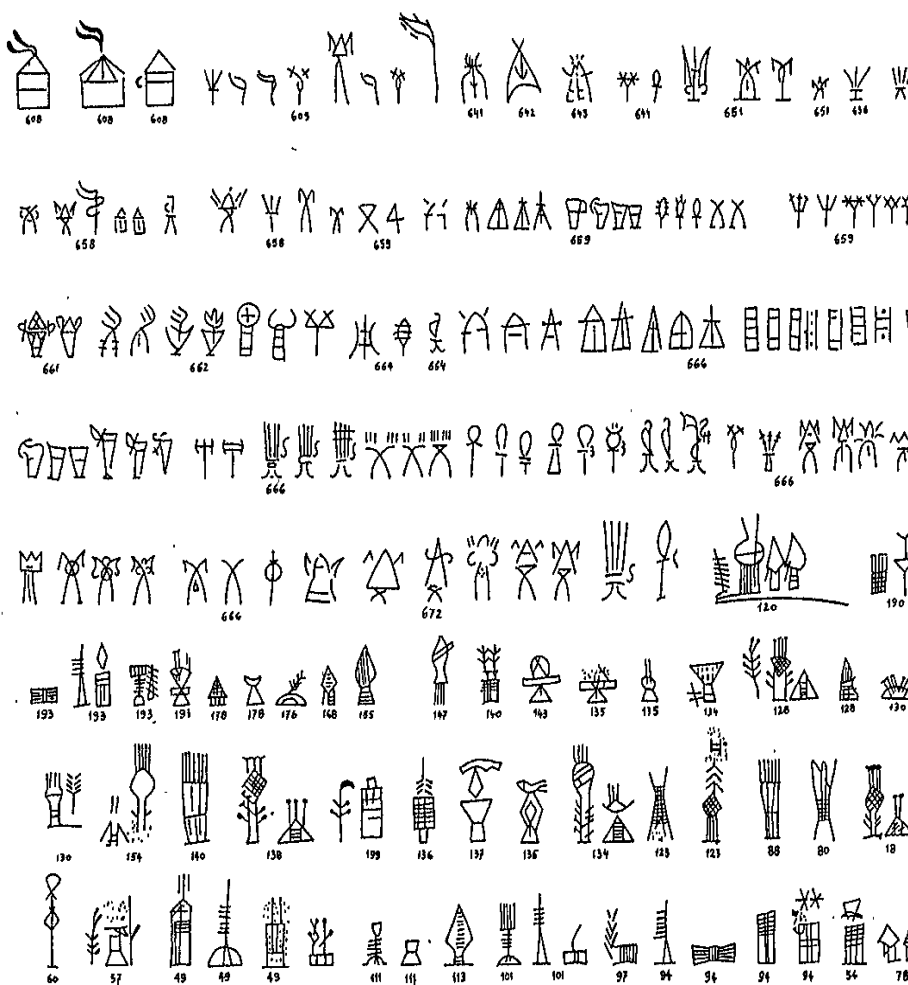 608 608 608 609 641 642 643 644 651 651 636
658 658 659 659 659
661 662 664 664 666
666 666
666 672 120 190
193 193 193 191 178 178 176 168 155 147 140 143 135 135 134 128 128 130
130 154 140 138 199 136 137 136 134 123 123 88 80 18
60 57 49 49 49 111 111 113 101 101 97 94 94 94 94 54 78